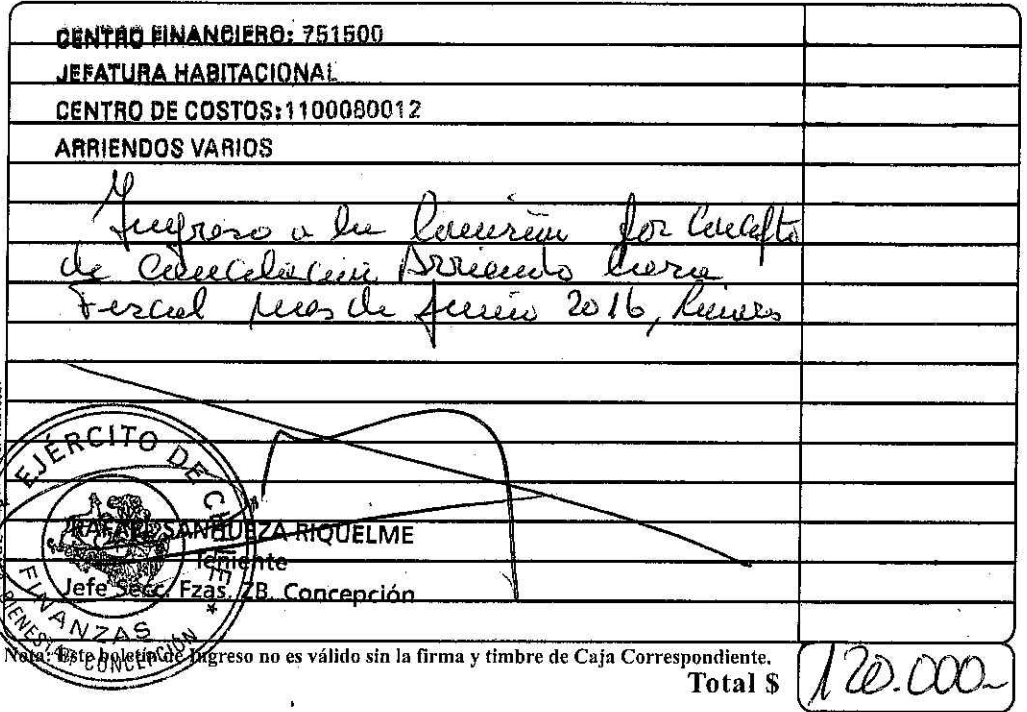 CENTRO FINANCIERO: 751500
JEFATURA HABITACIONAL
CENTRO DE COSTOS:1100080012
ARRIENDOS VARIOS
Ingreso a la Comisión por Concepto
de Cancelación Arriendo Casa
Fiscal mes de Junio 2016, Linares
EJÉRCITO DE CHILE
RAFAEL SANHUEZA RIQUELME
Teniente
Jefe Secc. Fzas. ZB. Concepción
FINANZAS
BIENESTAR CONCEPCIÓN
Nota: Este boletin de Ingreso no es válido sin la firma y timbre de Caja Correspondiente.
Total $ 120.000-